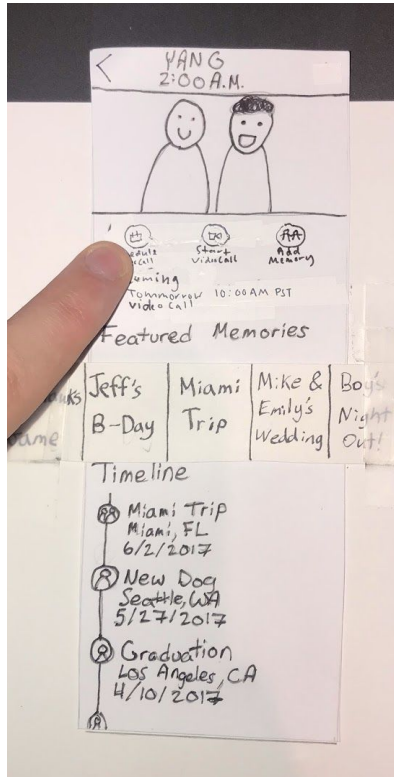 YANG
2:00 A.M.
Start
VideoCall
Add
Memory
Tommorrow 10:00AM PST
Video Call
Featured Memories
Jeff's
B-Day
Miami
Trip
Mike &
Emily's
Wedding
Boy's
Night
Out!
Timeline
Miami Trip
Miami, FL
6/2/2017
New Dog
Seattle, WA
5/27/2017
Graduation
Los Angeles, CA
4/10/2017